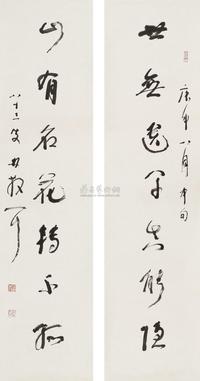 庚申八月中旬
世無遺草真能隱
山有名花轉不孤
八十三叟林散耳